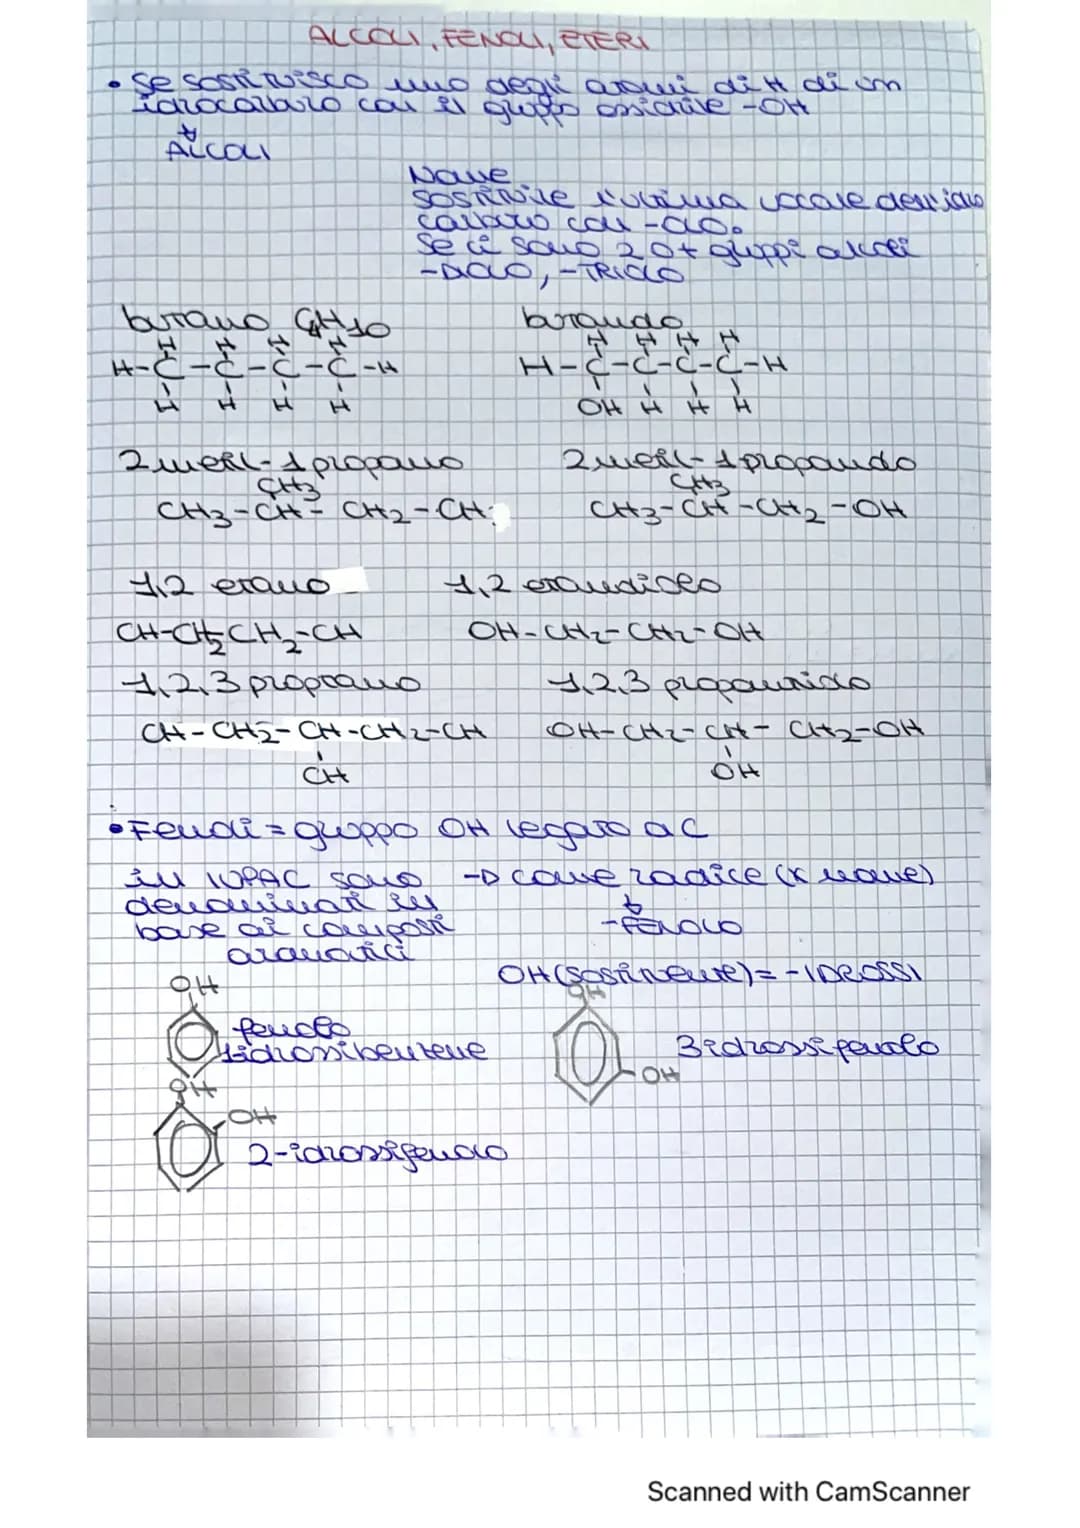 ALCOLI, FENOLI, ETERI
• Se sostituisco uno degli atomi di H di un
idrocarburo con il gruppo ossidrile -OH
ALCOLI
Nome
sostituire l'ultima vocale dell'idro
carburo con -olo.
Se ci sono 2 o + gruppi alcoli
-DIOLO, -TRIOLO
butano C4H10
butanolo
H H H H
H-C-C-C-C-H
H H H H
H H H H
H-C-C-C-C-H
OH H H H
2 metil-1 propano
2 metil-1 propanolo
CH3
CH3-CH-CH2-CH3
CH3
CH3-CH-CH2-OH
1,2 etano
1,2 etandiolo
CH-CH2-CH2-CH
OH-CH2-CH2-OH
1,2,3 proprano
1,2,3 propantriolo
CH-CH2-CH-CH2-CH
CH
OH-CH2-CH-CH2-OH
OH
• Fenoli = gruppo OH legato a C
in IUPAC sono
denominati in
base ai composti
aromatici
→ come radice (x nome)
-FENOLO
OH (sostituente) = -IDROSSI
OH
fenolo
1idrossibenzene
OH
OH
3idrossifenolo
OH
OH
2-idrossifenolo
Scanned with CamScanner